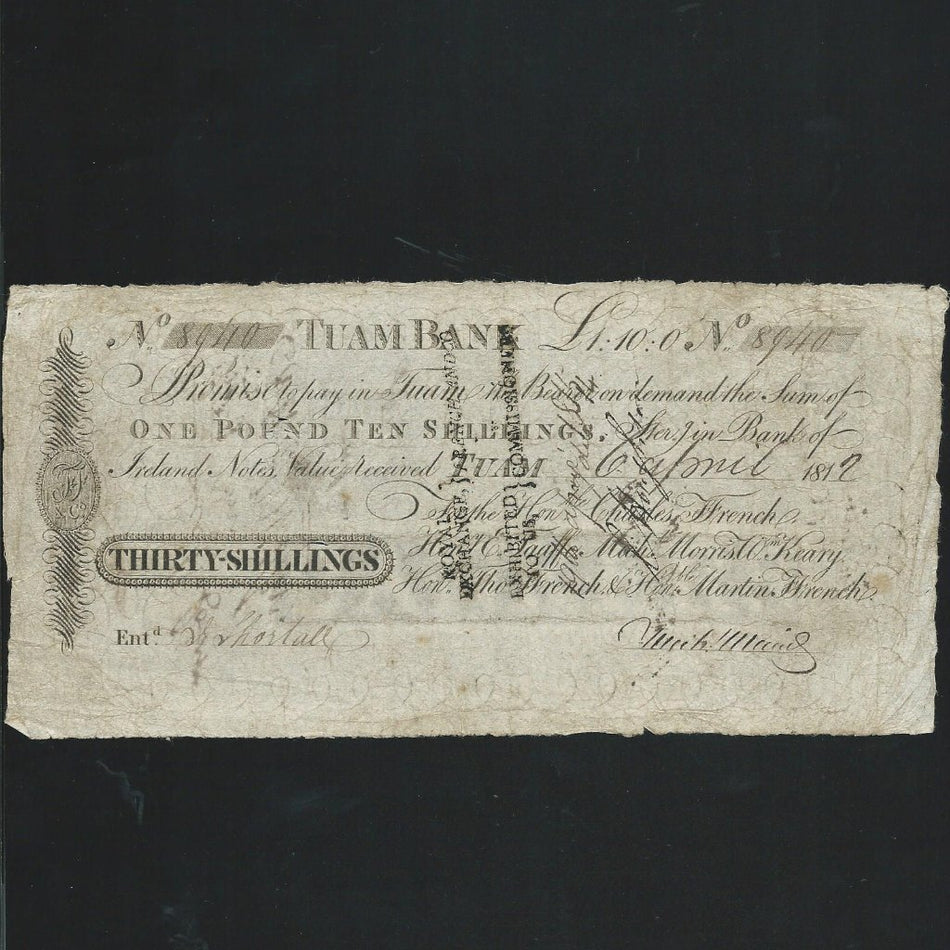 No. 8940 TUAM BANK £1:10:0 No. 8940
I Promise to pay in Tuam the Bearer on demand the Sum of
ONE POUND TEN SHILLINGS. Ster.g in Bank of
Ireland Notes, Value received TUAM 6 April 1812
For the Hon. Charles Ffrench
THIRTY-SHILLINGS
Mich. Morris Wm. Keary
Hon. Thos. Ffrench, & Hon.ble Martin Ffrench.
Ent.d Shortall
FF & Co.
ROYAL EXCHANGE,
EXHIBITED COMMISSIONERS